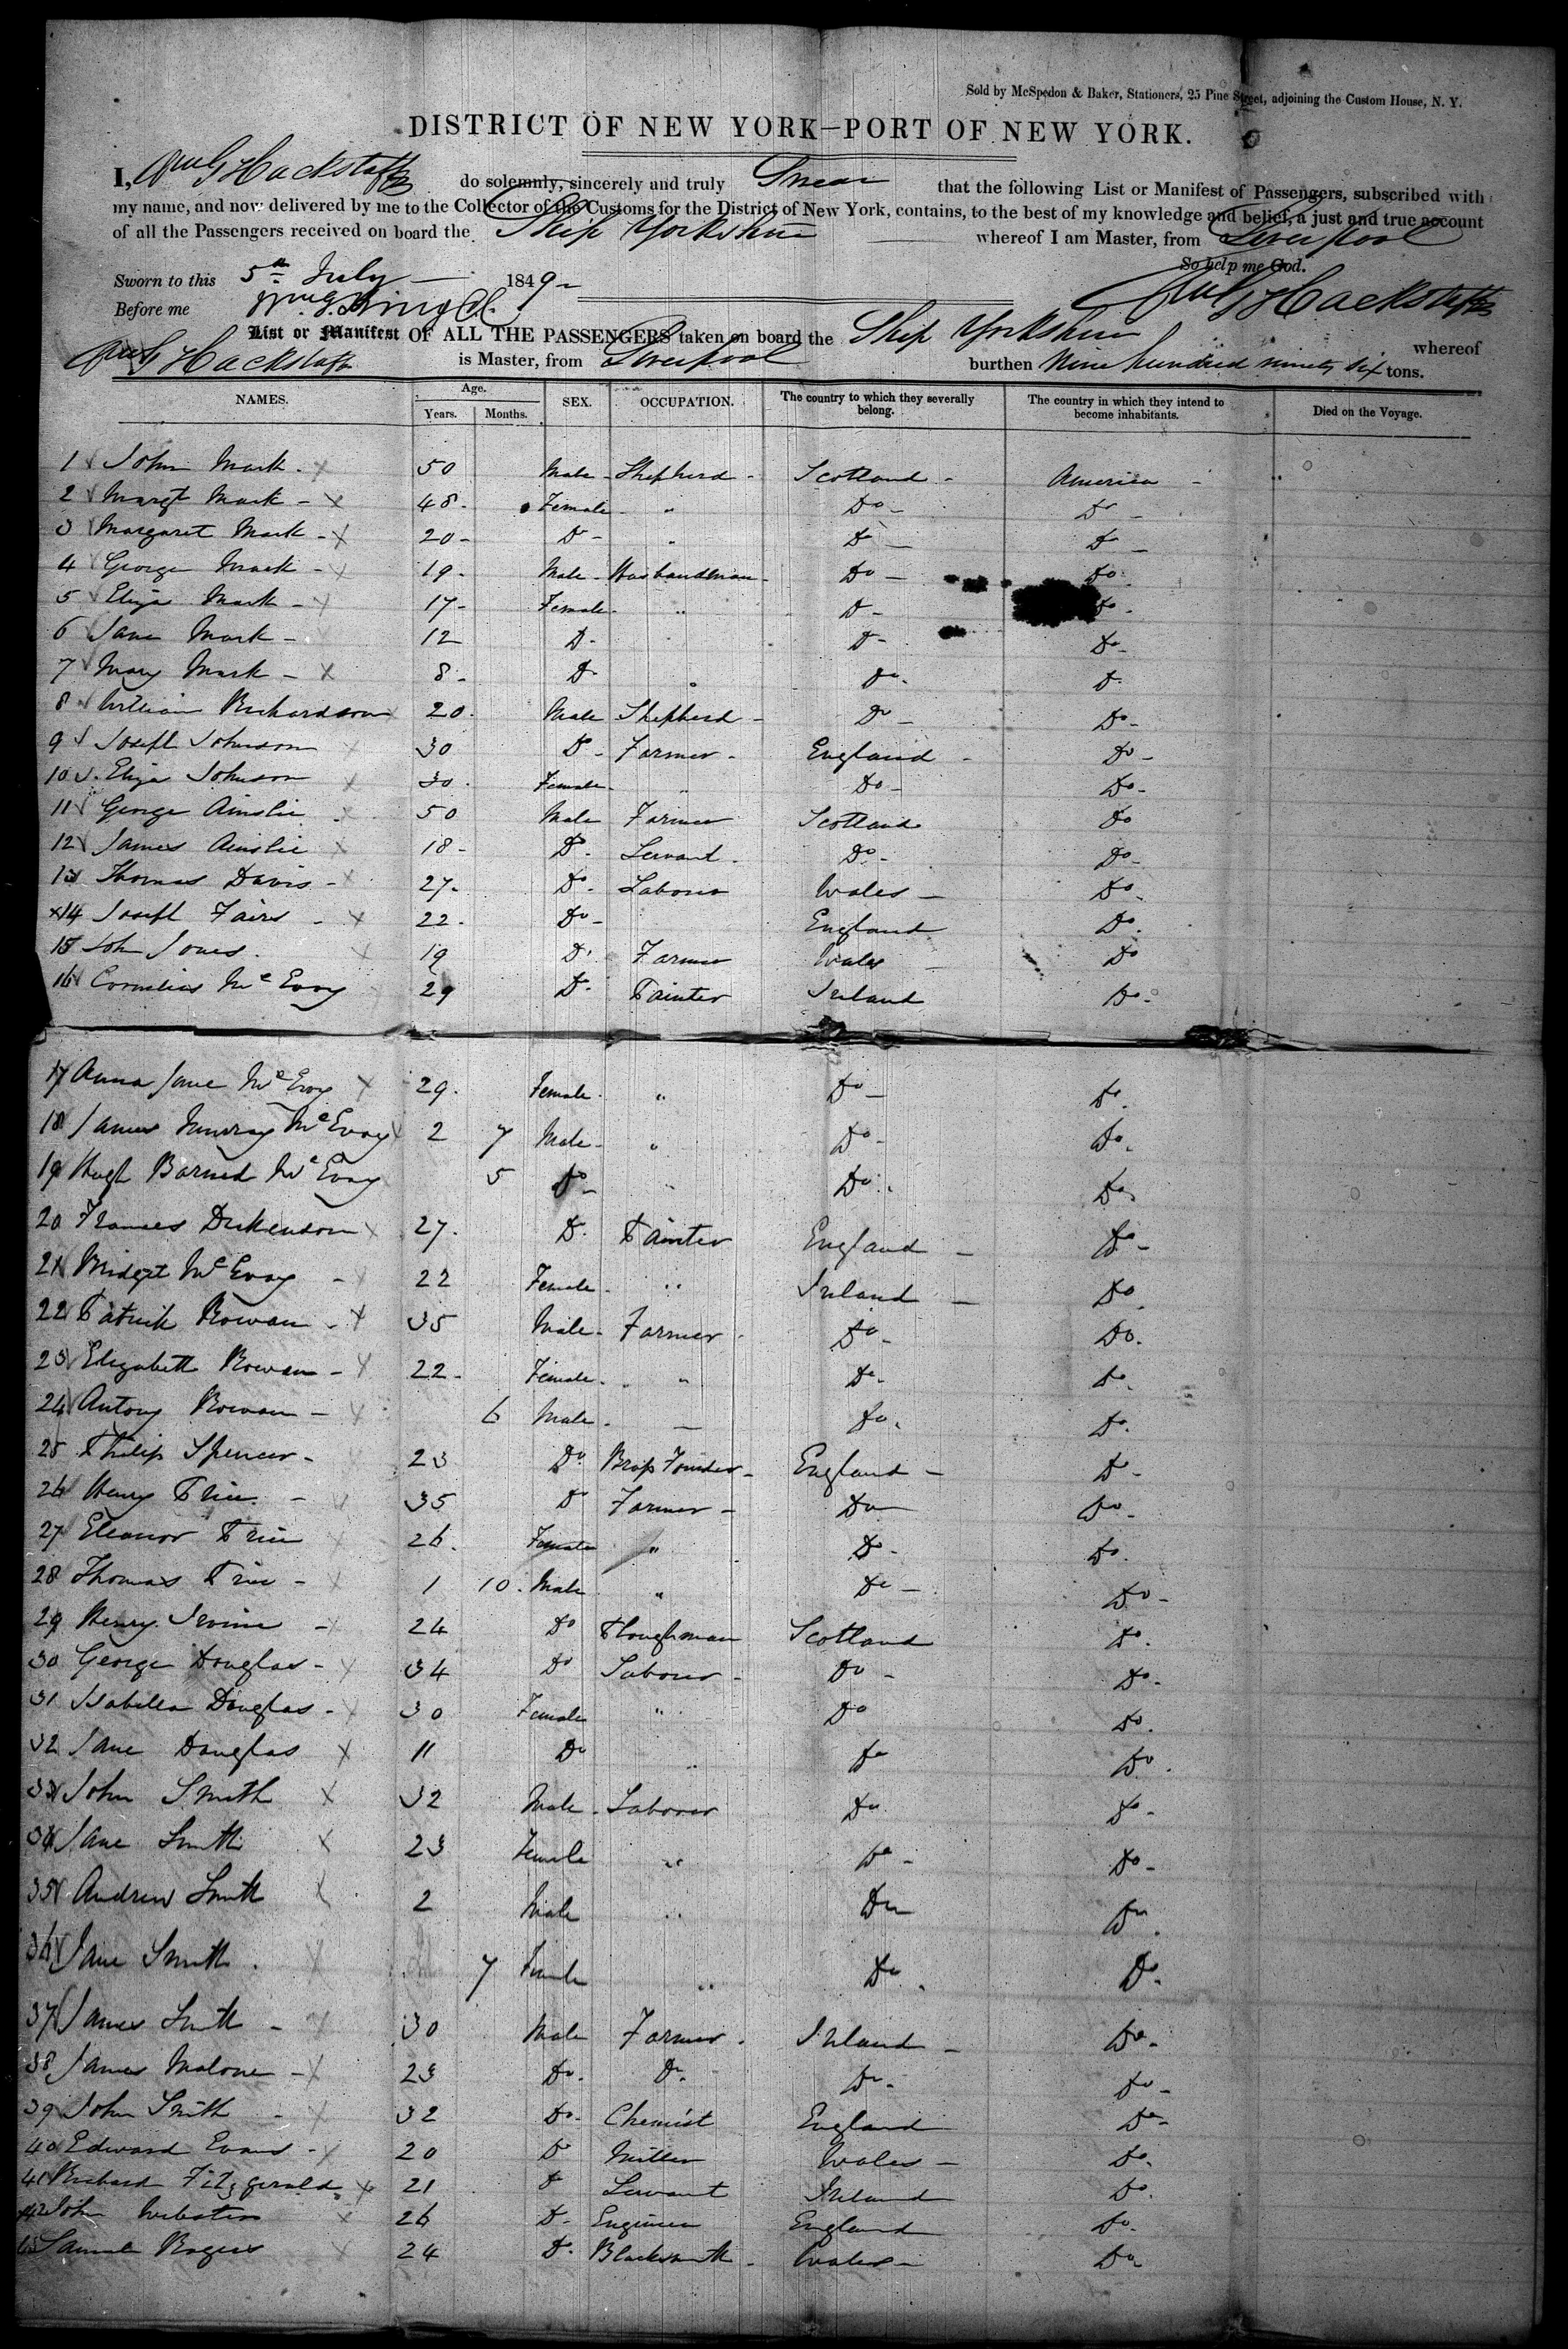 Sold by McSpedon & Baker, Stationers, 25 Pine Street, adjoining the Custom House, N. Y.
DISTRICT OF NEW YORK—PORT OF NEW YORK.
I, Wm G Hackstaff do solemnly, sincerely and truly Swear that the following List or Manifest of Passengers, subscribed with
my name, and now delivered by me to the Collector of the Customs for the District of New York, contains, to the best of my knowledge and belief, a just and true account
of all the Passengers received on board the Ship Yorkshire whereof I am Master, from Liverpool
So help me God.
Sworn to this 5th July 1849
Before me Wm G Hackstaff
List or Manifest OF ALL THE PASSENGERS taken on board the Ship Yorkshire whereof
Wm G Hackstaff is Master, from Liverpool burthen Nine hundred ninety six tons.
NAMES. Age. Years. Months. SEX. OCCUPATION. The country to which they severally belong. The country in which they intend to become inhabitants. Died on the Voyage.
1 John Mark 50 Male Shepherd Scotland America
2 Margt Mark 48 Female " Do Do
3 Margaret Mark 20 Do " Do Do
4 George Mark 19 Male Husbandman Do Do
5 Eliza Mark 17 Female " Do Do
6 Jane Mark 12 Do Do Do
7 Mary Mark 8 Do " Do Do
8 William Richardson 20 Male Shepherd Do Do
9 Joseph Johnson 30 Do Farmer England Do
10 Eliza Johnson 30 Female " Do Do
11 George Ainslie 50 Male Farmer Scotland Do
12 James Ainslie 18 Do Servant Do Do
13 Thomas Davis 27 Do Labourer Wales Do
14 Joseph Fairs 22 Do England Do
15 John Jones 19 Do Farmer Wales Do
16 Cornelius McEvoy 29 Do Painter Ireland Do
17 Anna Jane McEvoy 29 Female " Do Do
18 James Murray McEvoy 2 7 Male " Do Do
19 Hugh Barned McEvoy 5 Do " Do Do
20 Frances Dickenson 27 Do Painter England Do
21 Bridget McEvoy 22 Female " Ireland Do
22 Patrick Rowan 35 Male Farmer Do Do
23 Elizabeth Rowan 22 Female " Do Do
24 Antony Rowan 6 Male — Do Do
25 Philip Spencer 23 Do Brass Founder England Do
26 Henry Price 35 Do Farmer Do Do
27 Eleanor Price 26 Female " Do Do
28 Thomas Price 1 10 Male " Do Do
29 Henry Irvine 24 Do Ploughman Scotland Do
30 George Douglas 34 Do Labourer Do Do
31 Isabella Douglas 30 Female " Do Do
32 Jane Douglas 11 Do " Do Do
33 John Smith 32 Male Labourer Do Do
34 Jane Smith 23 Female " Do Do
35 Andrew Smith 2 Male " Do Do
36 Jane Smith 7 Female " Do Do
37 James Smith 30 Male Farmer Ireland Do
38 James Malone 23 Do Do Do Do
39 John Smith 32 Do Chemist England Do
40 Edward Evans 20 Do Miller Wales Do
41 Richard Fitzgerald 21 Do Servant Ireland Do
42 John Webster 26 Do Engineer England Do
43 Samuel Rogers 24 Do Blacksmith Wales Do